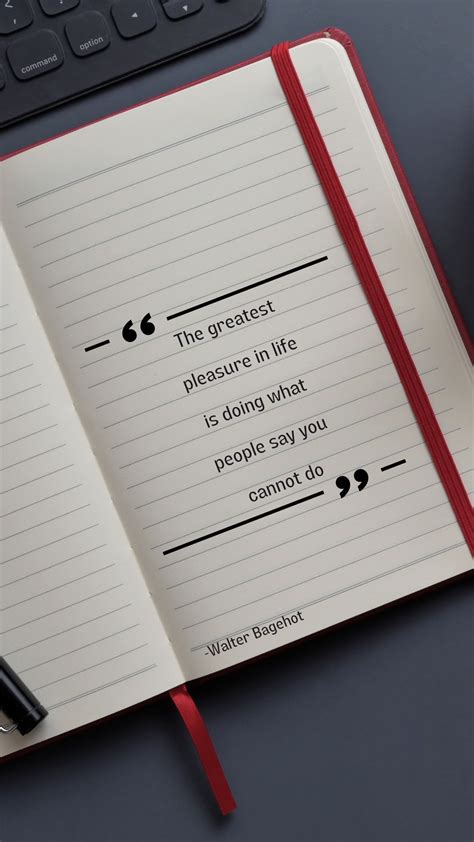 command
option
“
The greatest
pleasure in life
is doing what
people say you
cannot do
”
-Walter Bagehot